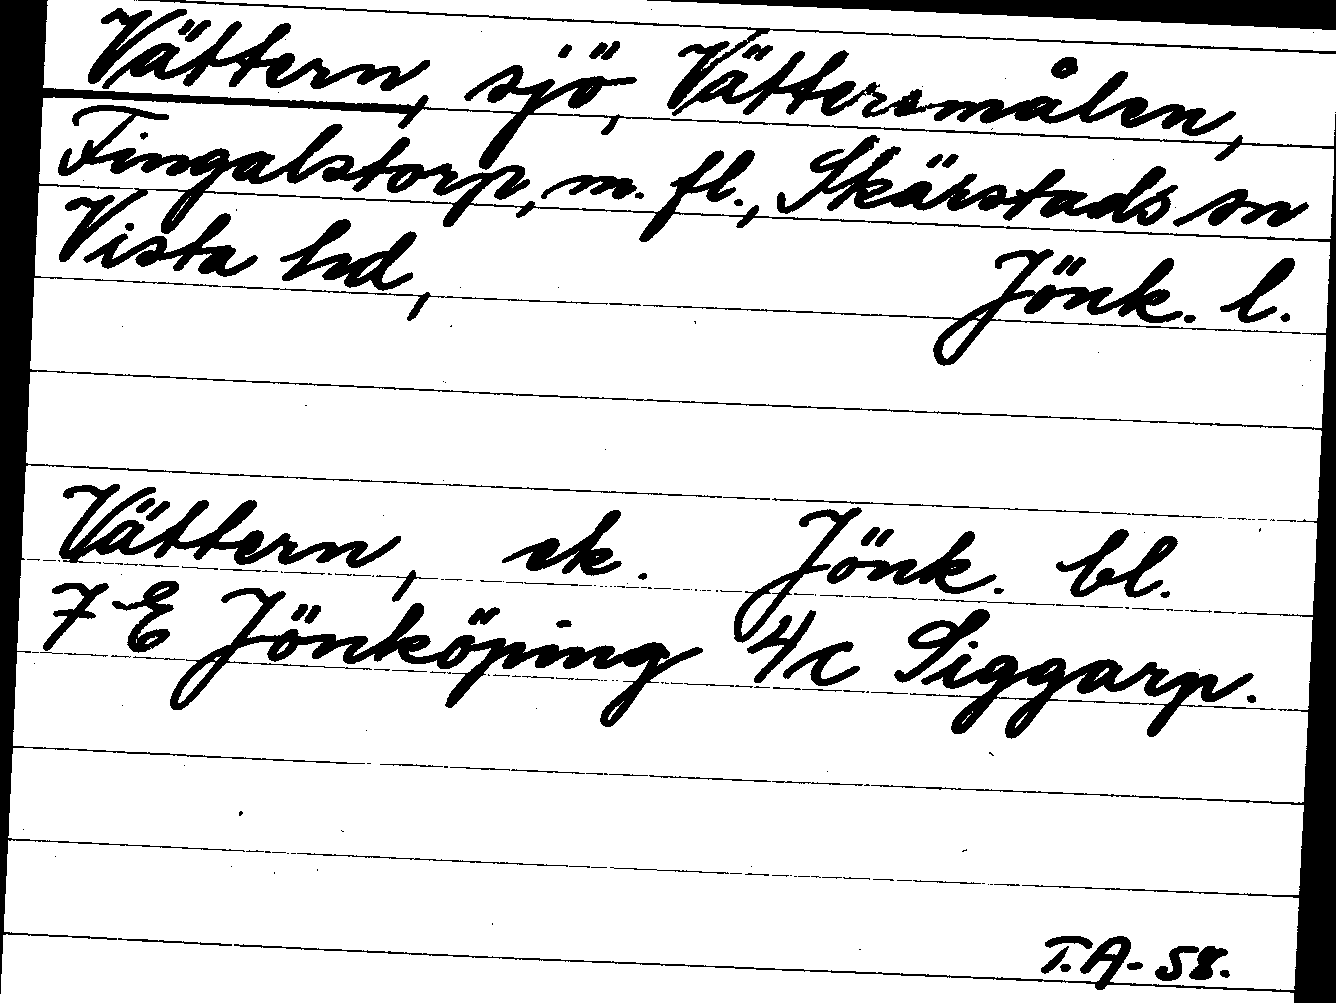 Vättern, sjö, Vättersmålen,
Fingalstorp, m. fl., Skärstads sn
Vista hd, Jönk. l.
Vättern, ek. Jönk. bl.
7 E Jönköping 4c Siggarp.
T.A-58.